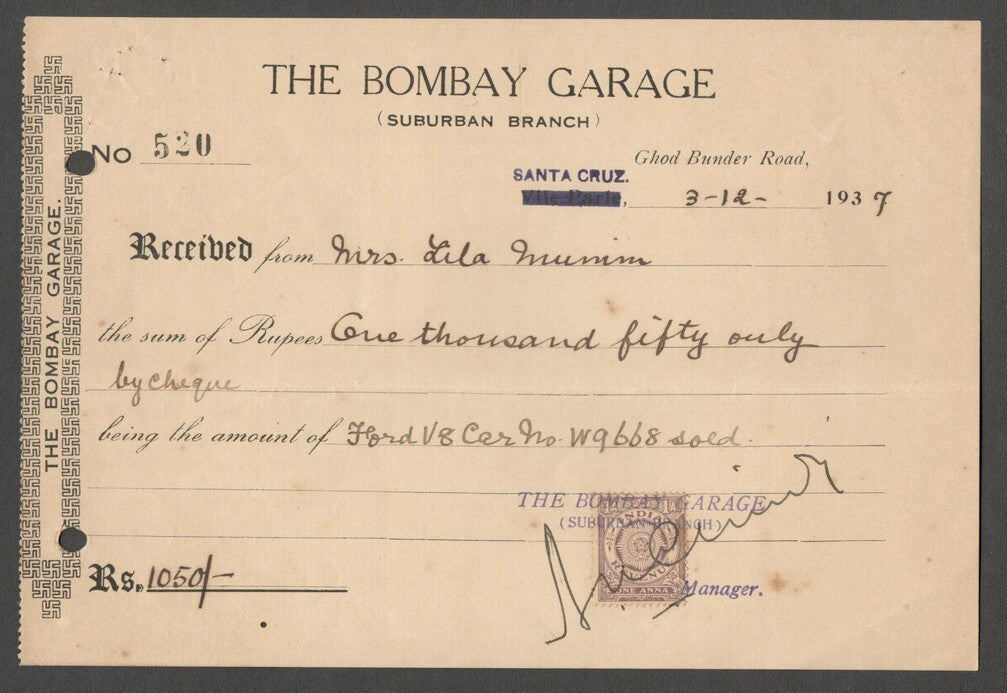 THE BOMBAY GARAGE
(SUBURBAN BRANCH)
No 520
Ghod Bunder Road,
SANTA CRUZ.
Vile Parle, 3-12- 1937
Received from Mrs. Lila Mumm
the sum of Rupees One thousand fifty only
by cheque
being the amount of Ford V8 Car No. W9668 sold.
THE BOMBAY GARAGE
(SUBURBAN BRANCH)
INDIA
REVENUE
ONE ANNA
Manager.
Rs. 1050/-
THE BOMBAY GARAGE.